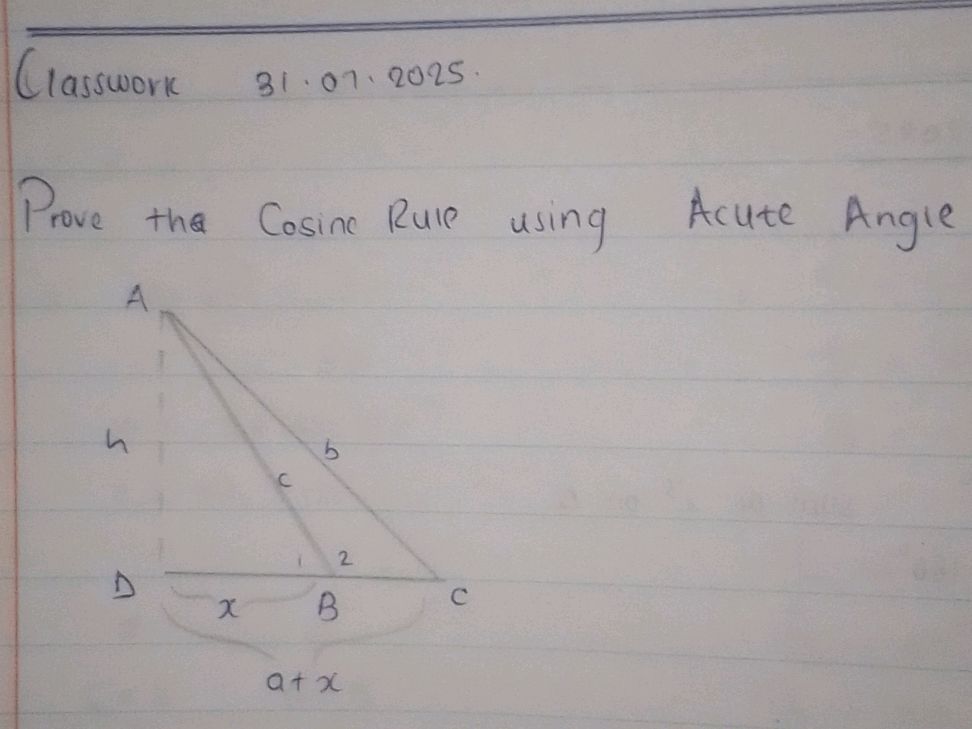 Classwork 31.07.2025.
Prove the Cosine Rule using Acute Angle
A
h
b
c
1 2
D
x
B
C
a + x